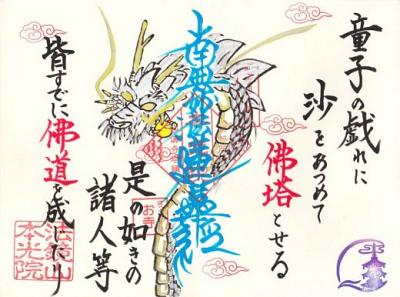 童子の戯れに
沙をあつめて
佛塔とせる
南無妙法蓮華経
是の如きの
諸人等
皆すでに佛道を成じたり
お寺
本光院